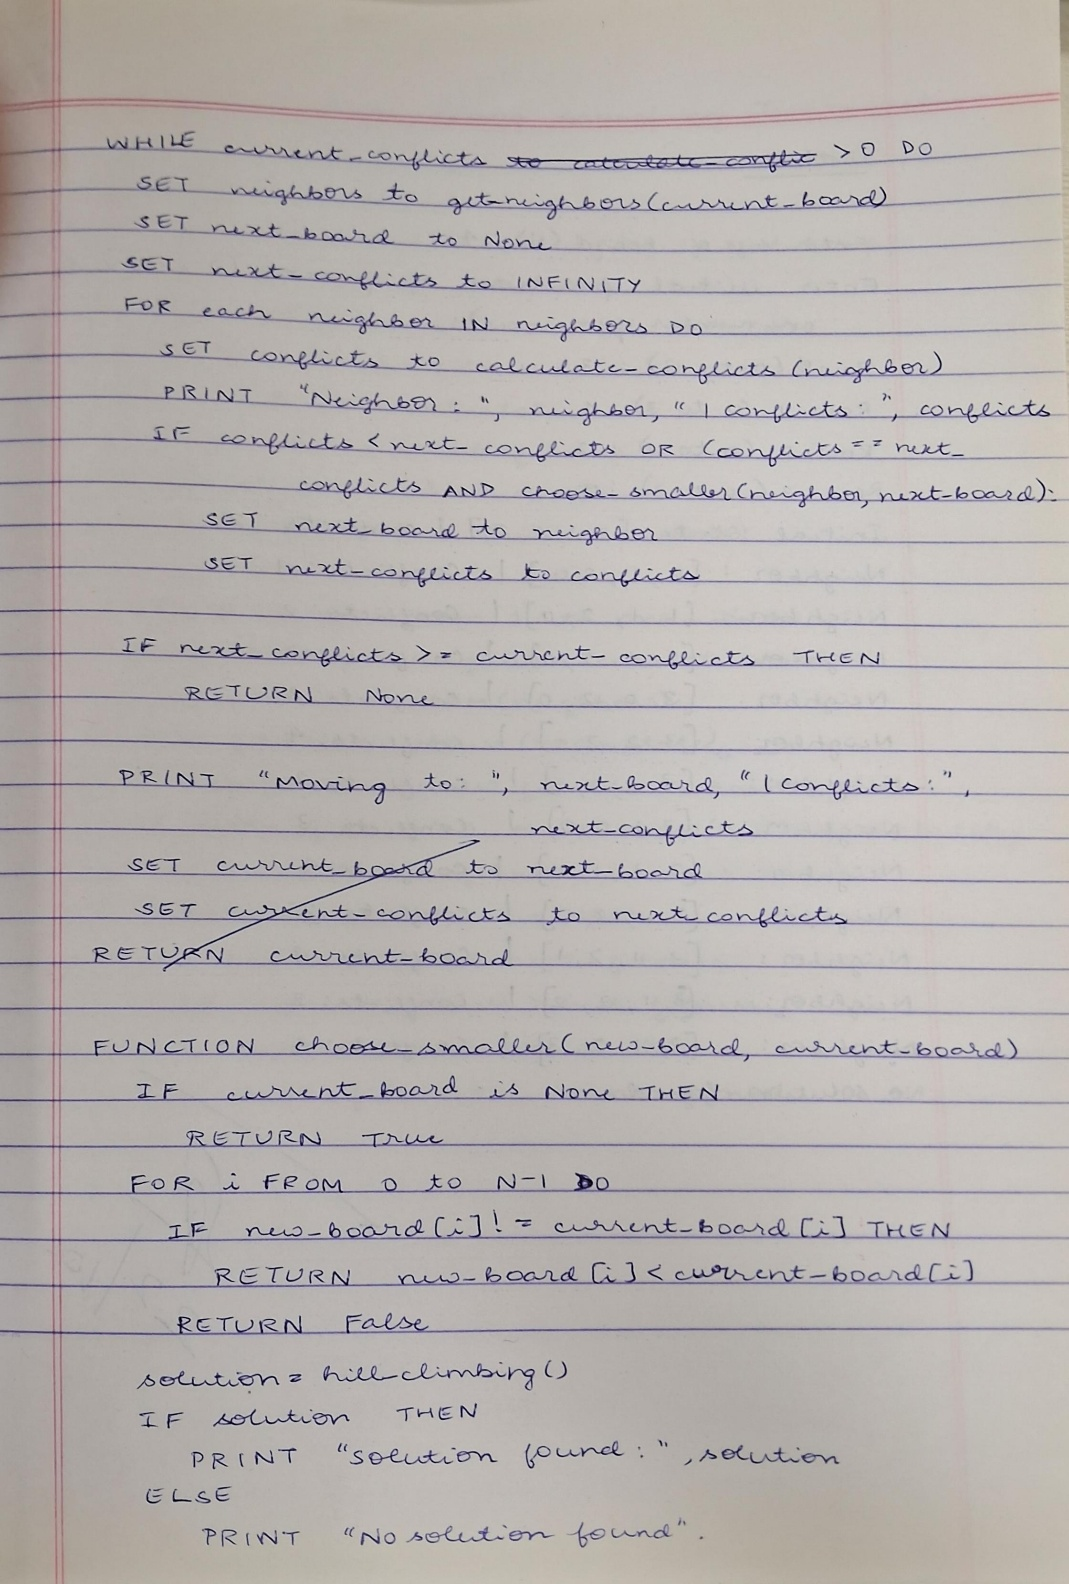 WHILE current_conflicts to calculate-conflic > 0 DO
SET neighbors to get-neighbors(current_board)
SET next_board to None
SET next-conflicts to INFINITY
FOR each neighbor IN neighbors DO
SET conflicts to calculate-conflicts (neighbor)
PRINT "Neighbor: ", neighbor, " | conflicts: ", conflicts
IF conflicts < next_ conflicts OR (conflicts == next_
conflicts AND choose-smaller(neighbor, next-board):
SET next_board to neighbor
SET next-conflicts to conflicts
IF next_conflicts >= current-conflicts THEN
RETURN None
PRINT "Moving to: ", next-board, " | Conflicts:",
next-conflicts
SET current_board to next-board
SET current-conflicts to next conflicts
RETURN current-board
FUNCTION choose_smaller( new-board, current-board)
IF current_board is None THEN
RETURN True
FOR i FROM 0 to N-1 DO
IF new_board[i] != current-board[i] THEN
RETURN new-board[i] < current-board[i]
RETURN False
solution = hill-climbing()
IF solution THEN
PRINT "solution found: ", solution
ELSE
PRINT "No solution found".